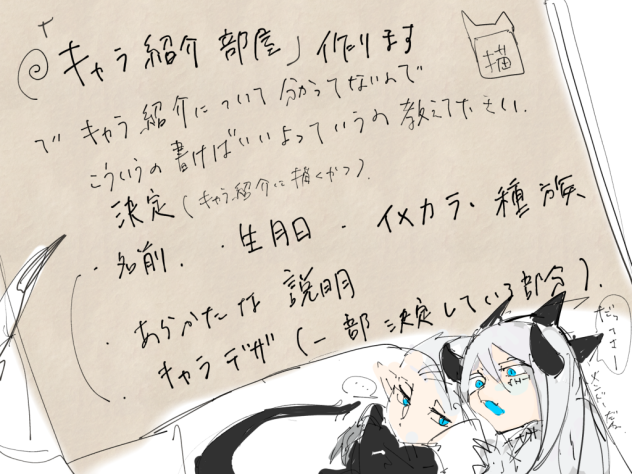 「キャラ紹介部屋」作ります
描
で キャラ紹介について分かってないんで
こういうの書けばいいよっていうの教えてください.
決定(キャラ紹介に描くやつ).
・名前. ・生月日・イメカラ・種族
・あらかたな 説明
・キャラデザ(一部決定している部分).
…
だってさー